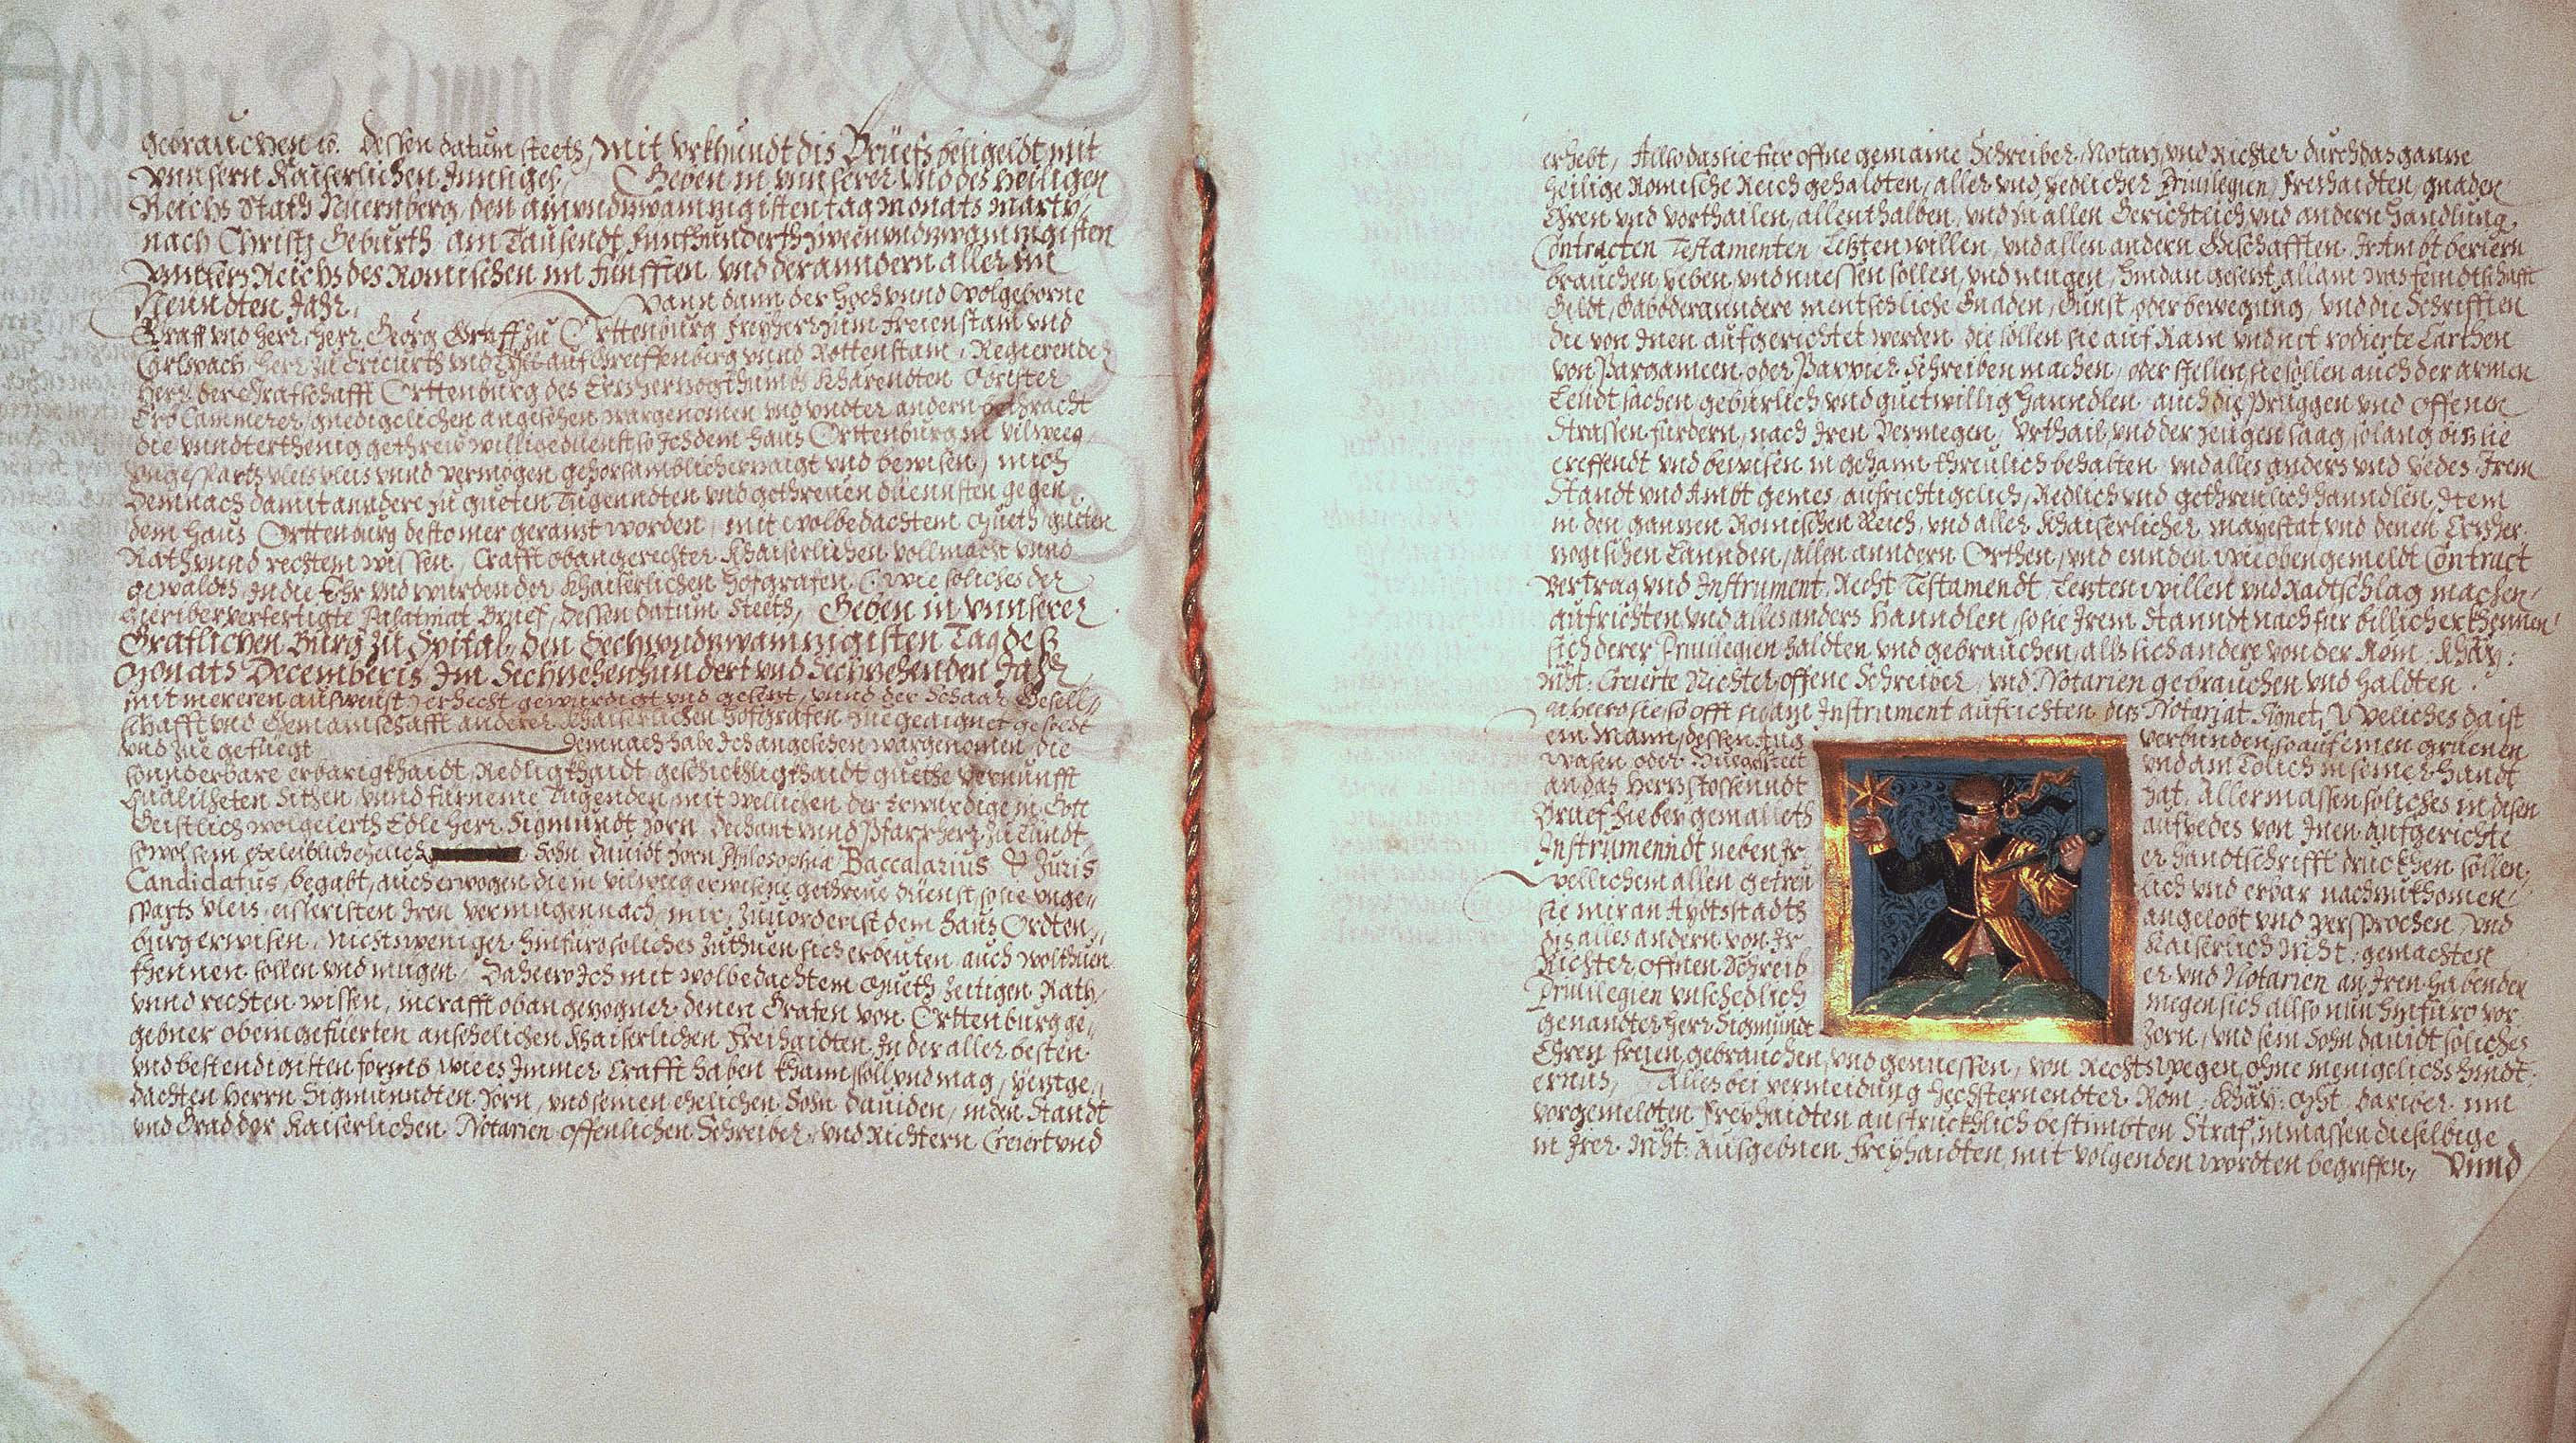 gebrauchen is. dessen datum steets, mit vrkhundt dis Brüefs besigeldt mit
vnnsern Kaiserlichen Innsigel, Geben in vnnserer vnd des Heiligen
Reichs Stath Nüernberg, den ainvndzwainzigisten tag monats marty,
nach Christj Geburth, am Tausendt fünfhunderth zween vnd zwainzigisten
vnnsers Reichs des Romischen im fünfften vnd der anndern aller im
Neündten Jahr, Wann dann der Hoch vnnd Wolgeborne
Graff vnd Herr, Herr Georg Graff zu Orttenburg Freyherr zum Freienstain vnd
Carlspach, Herr zu auf Greiffenberg vnnd Rottenstain, Regierender
Herr der Grafschafft Orttenburg des Erzherzogthumbs Khärendten Obrister
Erb Cammerer, gnedigclichen angesehen, wargenomen vnd vndter andern bethracht
die vnndterthenig gethrew willige düenst so Ich dem Haus Orttenburg in vilweeg,
vngespartz vleis vnnd vermögen gehorsamblich erzaigt vnd bewisen, mich
Demnach damit anndere zu gueten Tugenndten vnd gethreuen düennsten gegen
dem Haus Orttenburg desto mer geraizt worden, mit wolbedachtem Mueth, gueten
Rath vnnd rechtem wissen, Crafft oban gerechter Khaiserlichen vollmacht vnnd
gewaldts, In die Ehr vnd würden der Khaiserlichen Hofgrafen, wie soliches der
hierüber verfertigte Palatinat Brief, dessen datum steets, Geben in vnnserer
Gräflichen Burg zu Spital, den Sechvndzwainzigisten Tag deß
Monats Decembris Im Sechzehenhundert vnd Sechzehenden Jahr,
mit mereren ausweist, erhecht gewürdigt vnd gesezt, vnnd der Schaar Gesell-
schafft vnd Gemainschafft anderer Khaiserlichen Hofgrafen zuegeaignet gesodt
vnd zue gefüegt Demnach habe Ich angesehen wargenomen, die
sonderbare erbarigkhaidt, Redligkhaidt geschickhligkhaidt guethe Vernunfft
Qualiteten Sithen, vnnd fürneme Tugenden, mit wellichen der Erwürdige in Gott
Geistlich wolgelerth Edle Herr Sigmündt Zorn, Dechant vnnd Pfarrherr zu Landt
sowol sein eheleiblichehelich Sohn Dauidt Zorn Philosophia Baccalarius & Juris
Candidatus, begabt, auch erwogen die in vilweeg erwisene gethreue düenst, so sie vnge-
sparts vleis, eisseristen Iren vermügen nach, mir, zuuorderist dem Haus Ordten-
burg erwisen, Nicht weniger hinfüro soliches zuthuen sich erbeuten, auch wolthuen
khennen sollen vnd mügen, Daheero Ich mit wolbedachtem Mueth Zeitigen Rath,
vnnd rechten wissen, in crafft obangezogner denen Grafen von Orttenburg ge-
gebner obemgefüerten ansehelichen Khaiserlichen Freihaidten, In der aller besten
vnd bestendigisten form, wie es Immer Crafft haben khann, soll vnd mag, yeztge-
dachten Herrn Sigmunndten Zorn, vnd seinen ehelichen Sohn Dauiden, in den Standt
vnd Grad der Kaiserlichen Notarien offenlichen Schreiber, vnd Richtern Creiert vnd
erhebt, Also das sie für offne gemaine Schreiber, Notarj, vnd Richter durch das ganze
heilige Romische Reich gehaldten, aller vnd yedlicher Priuilegien, Freihaidten, gnaden
Ehren vnd vorthailen, allenthalben, vnd in allen Gerichtlich vnd andern Handlung,
Contracten Testamenten, Letzten willen, vnd allen andern Geschäfften Ir Ambt beriern
brauchen, yeben, vnd niessen sollen, vnd mügen, hindan gesezt, allain was feindtschafft
Geldt, Gab oder anndere mentschliche Gnaden, Gunst, oder bewegung, vnd die Schrifften
die von Inen aufgerichtet werden, die sollen sie auf Rain vnd nit rodierte Carthen
von Pargameen, oder Pappier, Schreiben machen, oder stellen, sie sollen auch der armen
Leudt sachen gebürlich vnd guetwillig Hanndlen, auch die Pruggen vnd offenen
Strassen fürdern, nach Iren Vermegen, Vrthail, vnd der zeugen saag, solang biß sie
ereffendt vnd bewisen, in gehaim threulich behalten, vnd alles anders vnd yedes Irem
Standt vnd Ambt gemes, aufrichtigclich, Redlich vnd gethreulich hanndlen, Item
in den ganzen Romischen Reich, vnd aller Khaiserlicher Mayestat, vnd denen Erzher-
zogischen Lannden, allen anndern Orthen, vnd ennden, wie oben gemeldt Contract
Vertrag vnd Instrument, Recht Testamendt, Lezten willen vnd Radtschlag machen,
aufrichten, vnd alles anders Hanndlen, so sie Irem Stanndt nach für billich erkhennen
sich derer Priuilegien haldten vnd gebrauchen, alls sich andere von der Röm: Khäy:
Mst: Creierte Richter, offene Schreiber, vnd Notarien gebrauchen vnd haldten.
Daheero sie, so offt sie ain Instrument aufrichten, dis Notariat Signet, Weliches da ist
ein Mann, dessen Aug verbunden, so auf einen grüenen
wasen oder steet vnd ain Tolich in seiner Handt
an das Herz stossenndt hat, allermassen soliches in disen
Brief hieber gemallets auf yedes von Inen aufgerichte
Instrumenndt neben Ir- er Handtschrifft druckhen sollen,
wellichem allen getreu- lich vnd erbar nachzukhomen,
sie mir an Aydtsstadts angelobt vnd versprochen, vnd
dis alles andern von Ir Kaiserlich Mst: gemachten
Richter, offnen Schreib- er vnd Notarien an Iren habenden
Priuilegien vnschedlich megen sich allso nun hinfüro vor-
genandter Herr Sigmündt Zorn, vnd sein Sohn Dauidt soliches
Ehren freien, gebrauchen, vnd geniessen, von Rechtswegen, ohne menigelichs hindt-
ernus, Alles bei vermeidung höchsternendter Röm: Khäy: Mst: dariber inn
vorgemeldten Freyhaidten austruckhlich bestimbten Straf, inmassen dieselbige
in Irer Mst: Ausgebnen Freyhaidten, mit volgenden wordten begriffen, Vnnd